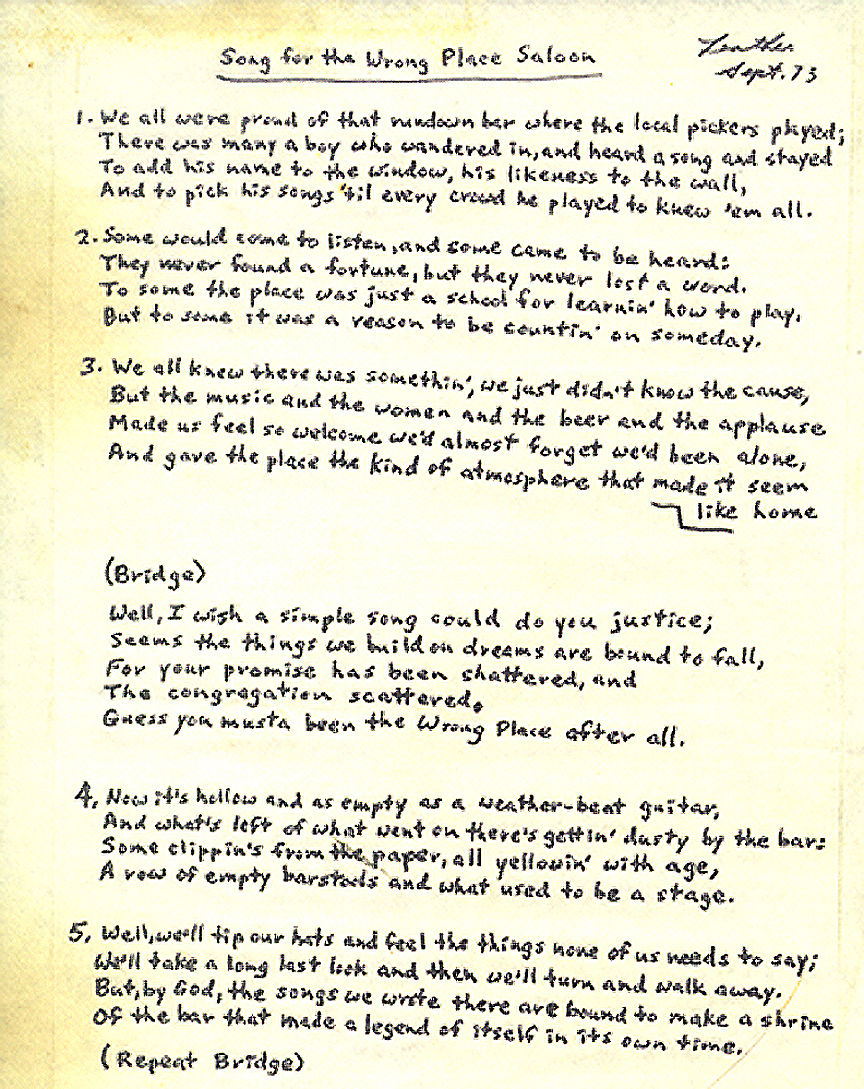 Song for the Wrong Place Saloon
Sept. 73
1. We all were proud of that rundown bar where the local pickers played;
There was many a boy who wandered in, and heard a song and stayed
To add his name to the window, his likeness to the wall,
And to pick his songs 'til every crowd he played to knew 'em all.
2. Some would come to listen, and some came to be heard:
They never found a fortune, but they never lost a word.
To some the place was just a school for learnin' how to play,
But to some it was a reason to be countin' on someday.
3. We all knew there was somethin', we just didn't know the cause,
But the music and the women and the beer and the applause
Made us feel so welcome we'd almost forget we'd been alone,
And gave the place the kind of atmosphere that made it seem
like home
(Bridge)
Well, I wish a simple song could do you justice;
Seems the things we build on dreams are bound to fall,
For your promise has been shattered, and
The congregation scattered.
Guess you musta been the Wrong Place after all.
4. Now it's hollow and as empty as a weather-beat guitar,
And what's left of what went on there's gettin' dusty by the bar:
Some clippin's from the paper, all yellowin' with age,
A row of empty barstools and what used to be a stage.
5. Well, we'll tip our hats and feel the things none of us needs to say;
We'll take a long last look and then we'll turn and walk away.
But, by God, the songs we wrote there are bound to make a shrine
Of the bar that made a legend of itself in its own time.
(Repeat Bridge)